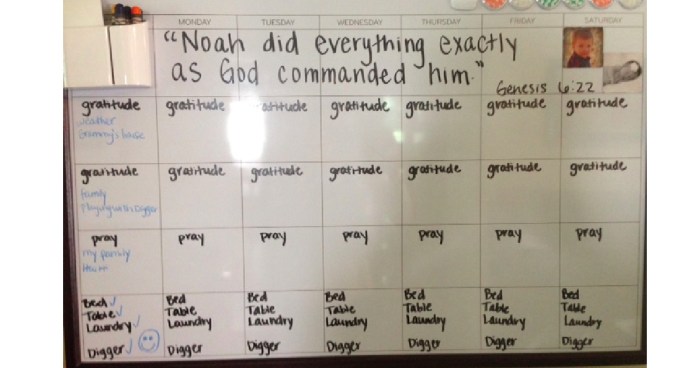 MONDAY TUESDAY WEDNESDAY THURSDAY FRIDAY SATURDAY
"Noah did everything exactly
as God commanded him."
Genesis 6:22
gratitude gratitude gratitude gratitude gratitude gratitude gratitude
weather
Grammy's house
gratitude gratitude gratitude gratitude gratitude gratitude gratitude
family
Playing with Digger
pray pray pray pray pray pray pray
my family
Bed ✓ Bed Bed Bed Bed Bed Bed
Table ✓ Table Table Table Table Table Table
Laundry ✓ Laundry Laundry Laundry Laundry Laundry Laundry
Digger ✓ Digger Digger Digger Digger Digger Digger